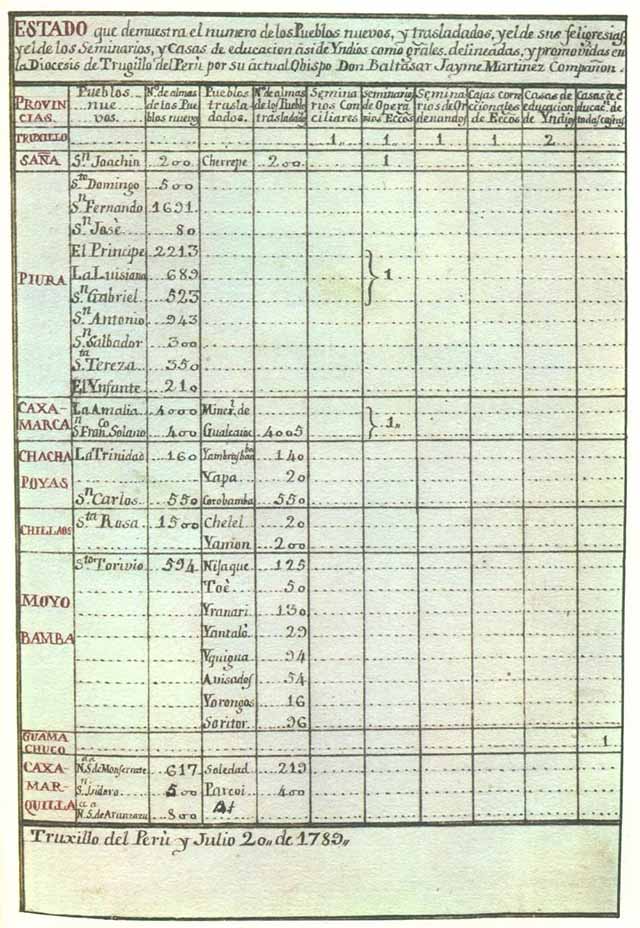 ESTADO que demuestra el numero de los Pueblos nuevos, y trasladados, y el de sus feligresias
y el de los Seminarios, y Casas de educacion asi de Yndios como grãles. delineadas, y promovidas en
la Diocesis de Trugillo del Perù por su actual Obispo Don Baltasar Jayme Martinez Compañon.
PROVINCIAS. Pueblos nuevos. Nº de almas de los Pueblos nuevos Pueblos trasladados. Nº de almas de los Pueblos trasladados Seminarios Conciliares Seminarios de Operarios Eccos. Seminarios de Ordenandos Casas correccionales de Eccos. Casas de educacion de Yndios Casas de educacn. de todas castas
TRUXILLO 1,, 1 1 1 2
SAÑA Sn. Joachin 200 Cherrepe 200 1
PIURA
Sto. Domingo 500
Sn. Fernando 1691
Sn. Josè 80
El Principe 2213
La Luisiana 689 1
Sn. Gabriel 523
Sn. Antonio 943
Sn. Salbador 300
Sta. Tereza 350
El Ynfante 210
CAXAMARCA La Amalia 4000 Minerl. de
Sn. Franco. Solano 400 Gualcaioc 4005 1,,
CHACHAPOYAS La Trinidad 160 Yambrasbamba 140
Yapa 20
Sn. Carlos 550 Corobamba 550
CHILLAOS Sta. Rosa 1500 Chelel 20
Yamon 200
MOYOBAMBA Sto. Torivio 594 Nijaque 125
Toè 50
Yranari 130
Yantalò 29
Yquigua 94
Avisados 54
Yorongos 16
Soritor 96
GUAMACHUCO 1
CAXAMARQUILLA N. S. de Monserrate 617 Soledad 219
Sn. Isidoro 500 Parcoi 400
N. S. de Aranzazu 800
Truxillo del Perù y Julio 20,, de 1789,,